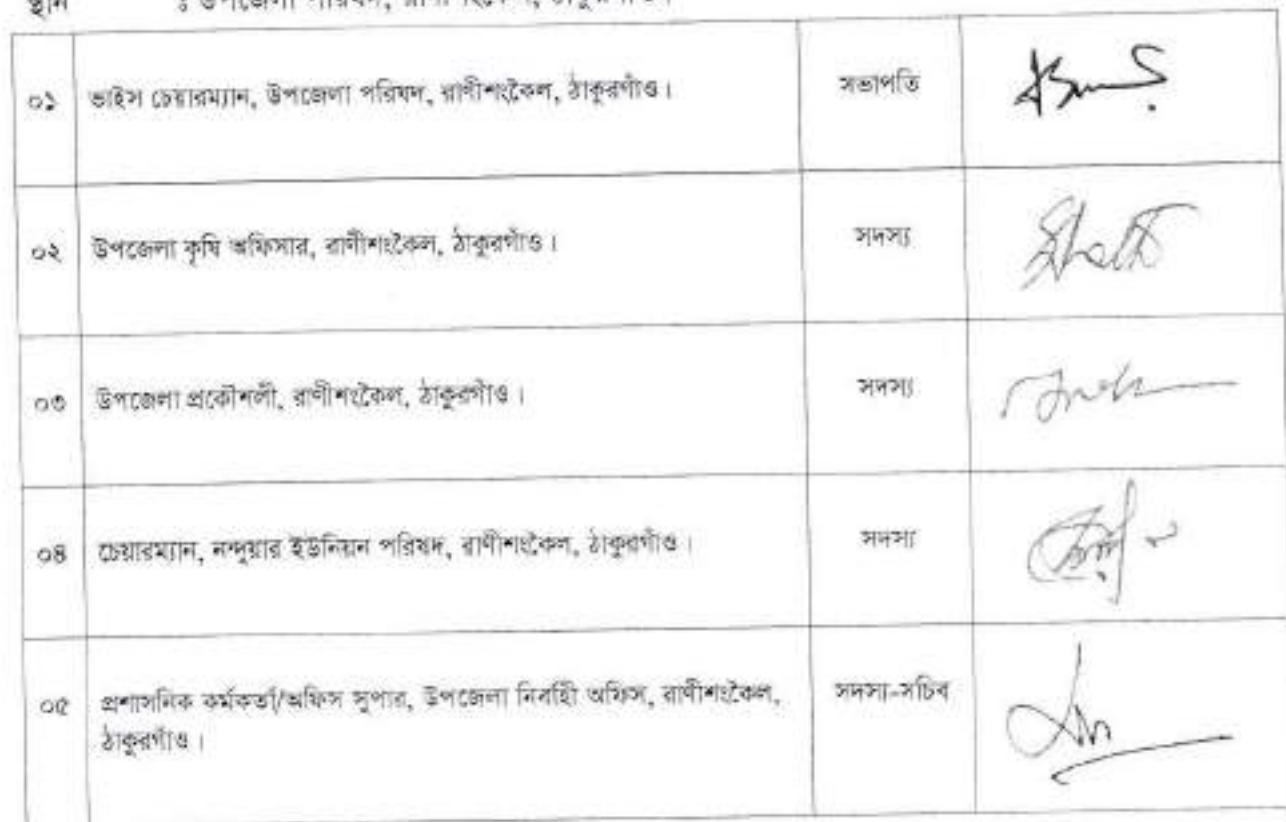 স্থান : উপজেলা পরিষদ, রাণীশংকৈল, ঠাকুরগাঁও।
০১ ভাইস চেয়ারম্যান, উপজেলা পরিষদ, রাণীশংকৈল, ঠাকুরগাঁও। সভাপতি
০২ উপজেলা কৃষি অফিসার, রাণীশংকৈল, ঠাকুরগাঁও। সদস্য
০৩ উপজেলা প্রকৌশলী, রাণীশংকৈল, ঠাকুরগাঁও। সদস্য
০৪ চেয়ারম্যান, নন্দুয়ার ইউনিয়ন পরিষদ, রাণীশংকৈল, ঠাকুরগাঁও। সদস্য
০৫ প্রশাসনিক কর্মকর্তা/অফিস সুপার, উপজেলা নির্বাহী অফিস, রাণীশংকৈল, সদস্য-সচিব
ঠাকুরগাঁও।